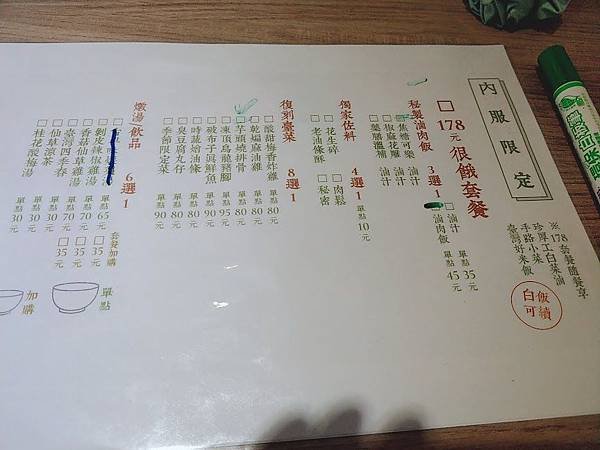 內服限定
※178套餐隨餐享
珍厚工白菜滷
手路小菜
臺灣好米飯
白飯可續
□ 178元 很餓套餐
秘製滷肉飯 3選1
焦糖可樂 滷汁
椒麻花雕 滷汁
藥膳溫補 滷汁
□滷汁 單點 35元
滷肉飯 單點 45元
獨家佐料 4選1
□花生碎 □肉鬆
□老油條酥 □秘密
單點10元
復刻臺菜 8選1
□酸甜梅香炸雞 單點80元
□乾煏麻油雞 單點80元
芋頭燒排骨 單點80元
□凍頂烏龍豬腳 單點95元
□破布子鮮魚 單點90元
□時蔬燴油條 單點80元
□臭豆腐丸仔 單點80元
□季節限定菜 單點90元
燉湯/飲品 6選1
□剝皮辣椒雞湯 單點65元 □35元
□香菇仙草雞湯 單點70元 □35元
□臺灣四季春 單點70元 □35元
□仙草涼茶 單點30元
□桂花酸梅湯 單點30元
套餐加購
單點
加購